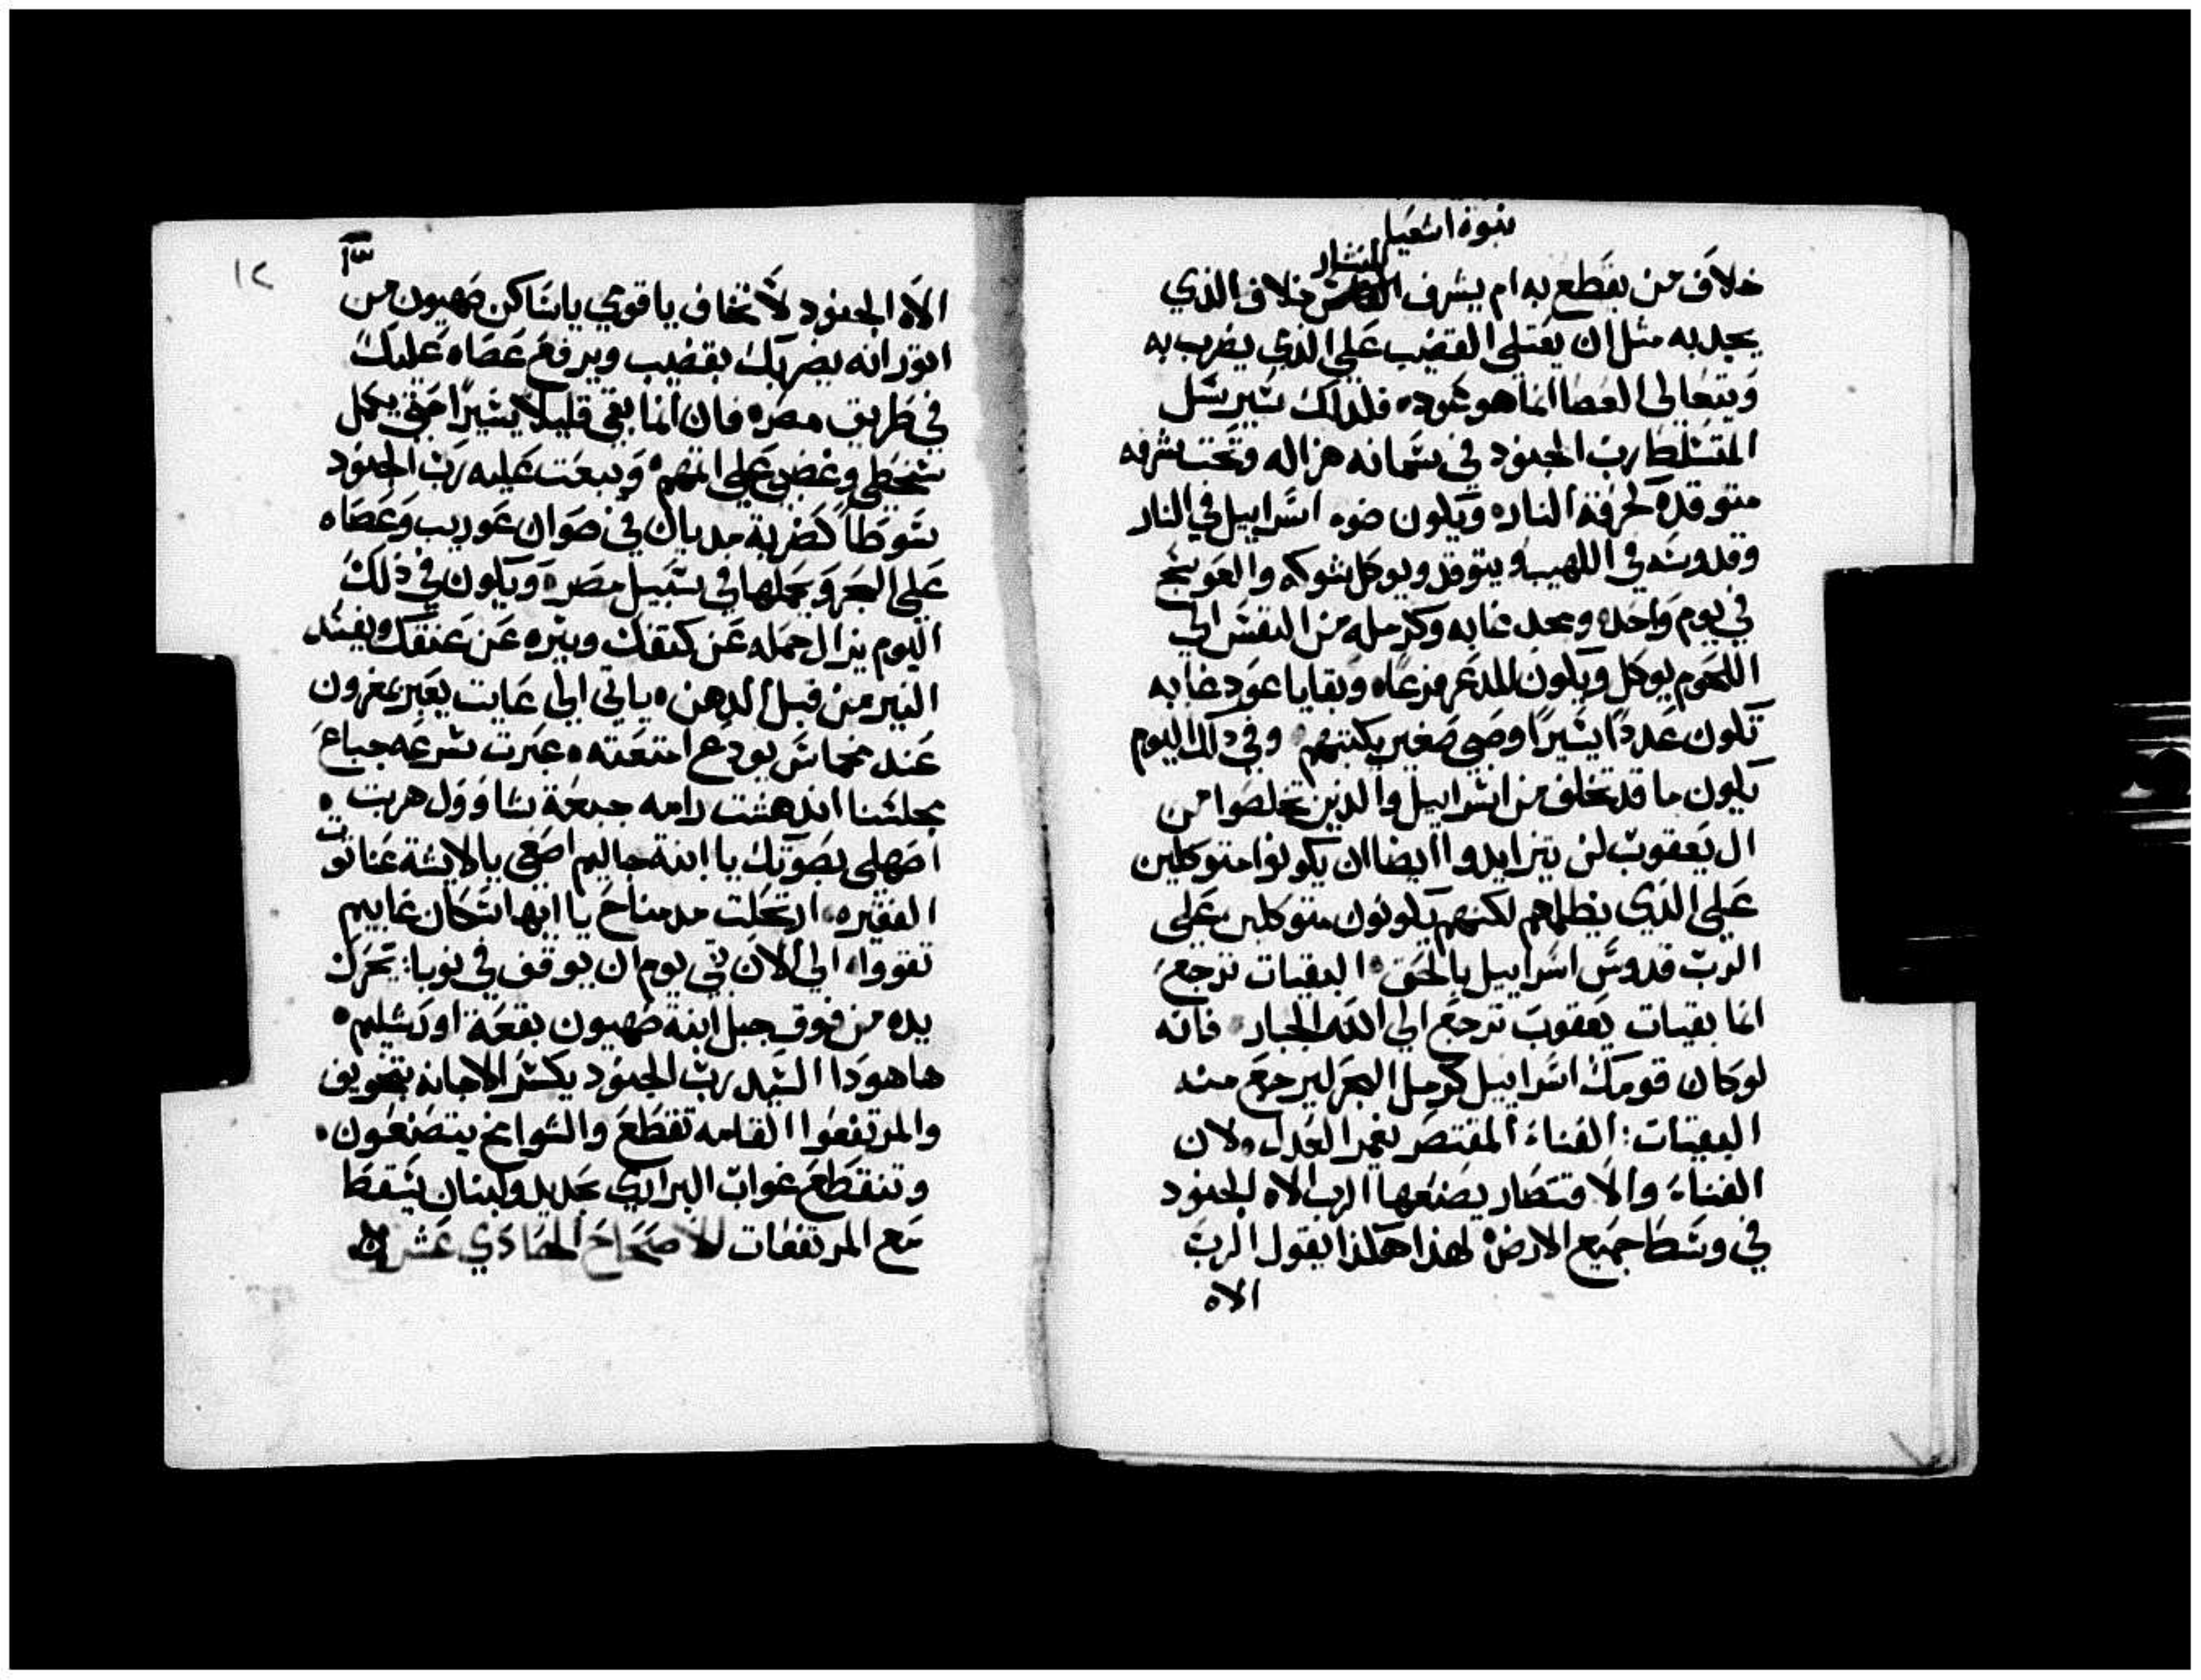 نبوة اشعيا
المنشار
خلاف من يقطع به ام يشرف خلاف الذي
يجد به مثل ان يعتلي القضيب علي الذي يضرب به
ويتعالي العصا انما هو عود، فلدلك سيرسل
المتسلط رب الجنود في سمانه هزاله وتحت شرفه
متوقده كحرقة النار، ويكون ضوء اسراييل في النار
وقدوسه في اللهيب ويتوقد ويوكل شوكه والعوسج
في يوم واحد، ومجد غابه وكرمله من النفس الي
اللحوم يوكل ويكون للمدعر فزعا، وبقايا عود غابه
تكون عددا يسيرا وصبي صغير يكتبهم، وفي دلك اليوم
يكون ما قد تخلف من اسراييل والذين تخلصوا من
ال يعقوب لن يتزايدوا ايضا ان يكونوا متوكلين
علي الذي يظلمهم لكنهم يكونون متوكلين علي
الرب قدوس اسراييل بالحق، البقيات ترجع
انما بقيات يعقوب ترجع الي الله الجبار، فانه
لو كان قومك اسراييل كرمل البحر ليرجع منه
البقيات: الفناء المقتصر يغمر العدل، ولان
الفناء والاقتصار يصنعها الرب الاه الجنود
في وسط جميع الارض، لهذا هكذا يقول الرب
الاه
١٣
١٢
الاه الجنود لا تخاف يا قومي يا ساكن صهيون من
اتور انه يضربك بقضيب ويرفع عصاه عليك
في طريق مصر، فان انما بقي قليلا يسيرا حتي يكمل
سخطي وغضبي علي اتمهم، ويبعت عليه رب الجنود
سوطا كضربة مديان في صوان عوريب وعصاه
علي البحر ويحملها في سبيل مصر، ويكون في ذلك
اليوم يزال حمله عن كتفك ونيره عن عنقك ويفسد
النير من قبل الدهن، ياتي الي عايت يعبر بمغرون
عند مخماس يودع امتعته، عبرت بسرعه جباع
مجلسنا اندهشت رامه جبعة شاوول هربت،
اصهلي بصوتك يا ابنة جاليم اصغي يا لايشة عناتوت
الفقيره، ارتحلت مدميناخ يا ايها اسكان غابيم
تقووا، الي الان بقي يوم ان يوقف في نوبا: يحرك
يده من فوق جبل ابنة صهيون بقعة اورشليم،
ها هودا السيد رب الجنود يكسر الاجانه بتخويف
والمرتفعوا القامه تقطع والشوامخ يتضعون،
وتنقطع غواب البراري بحديد ولبنان يسقط
مع المرتفعات الاصحاح الحادي عشر